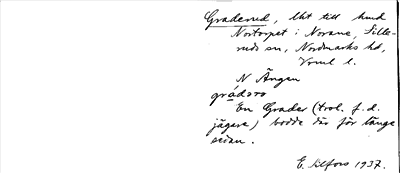 Graderud, lht till hmd
Nortorpet i Norane, Sille-
ruds sn, Nordmarks hd,
Vrml l.
N Ängen
grádәrә
En Grader (trol. f.d.
jägare) bodde där för länge
sedan.
E. Silfors 1937.